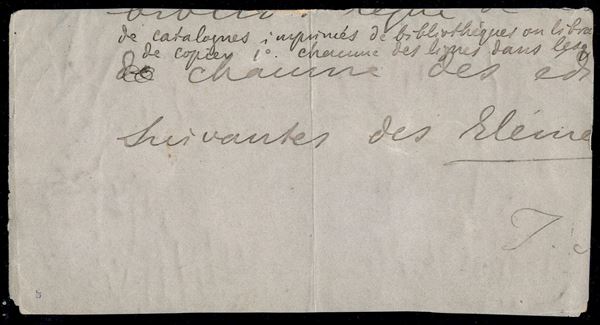 de catalogues imprimés de bibliothèques ou libra
de copier 1°. chacune des lignes dans lesq
de chacune des edi
suivantes des Eléme
T.
5